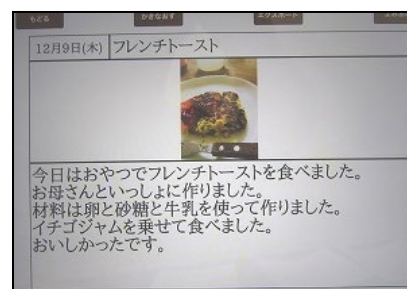 もどる
かきなおす
エクスポート
12月9日(木) フレンチトースト
今日はおやつでフレンチトーストを食べました。
お母さんといっしょに作りました。
材料は卵と砂糖と牛乳を使って作りました。
イチゴジャムを乗せて食べました。
おいしかったです。